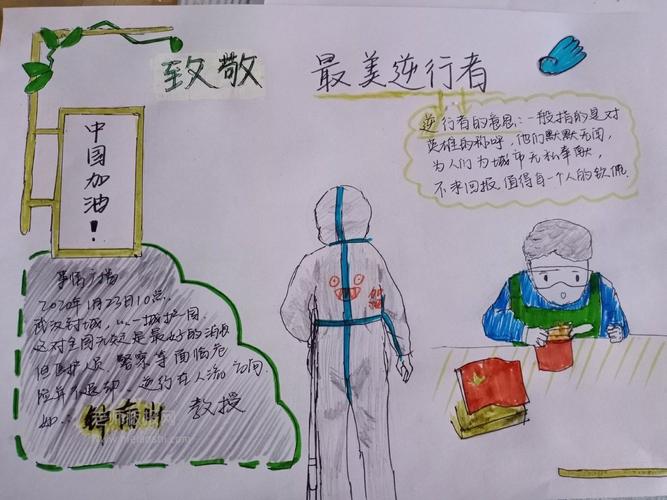 致敬 最美逆行者
中国加油！
逆行者的意思：一般指的是对
英雄的称呼，他们默默无闻，
为人们为城市无私奉献，
不求回报值得每一个人的钦佩
加油
2020年1月23日10点，
武汉封城，…一城护一国
这对全国无疑是最好的消息
但医护人员 警察等面临危
险年不退动 逆行在人流之间
如：
教授